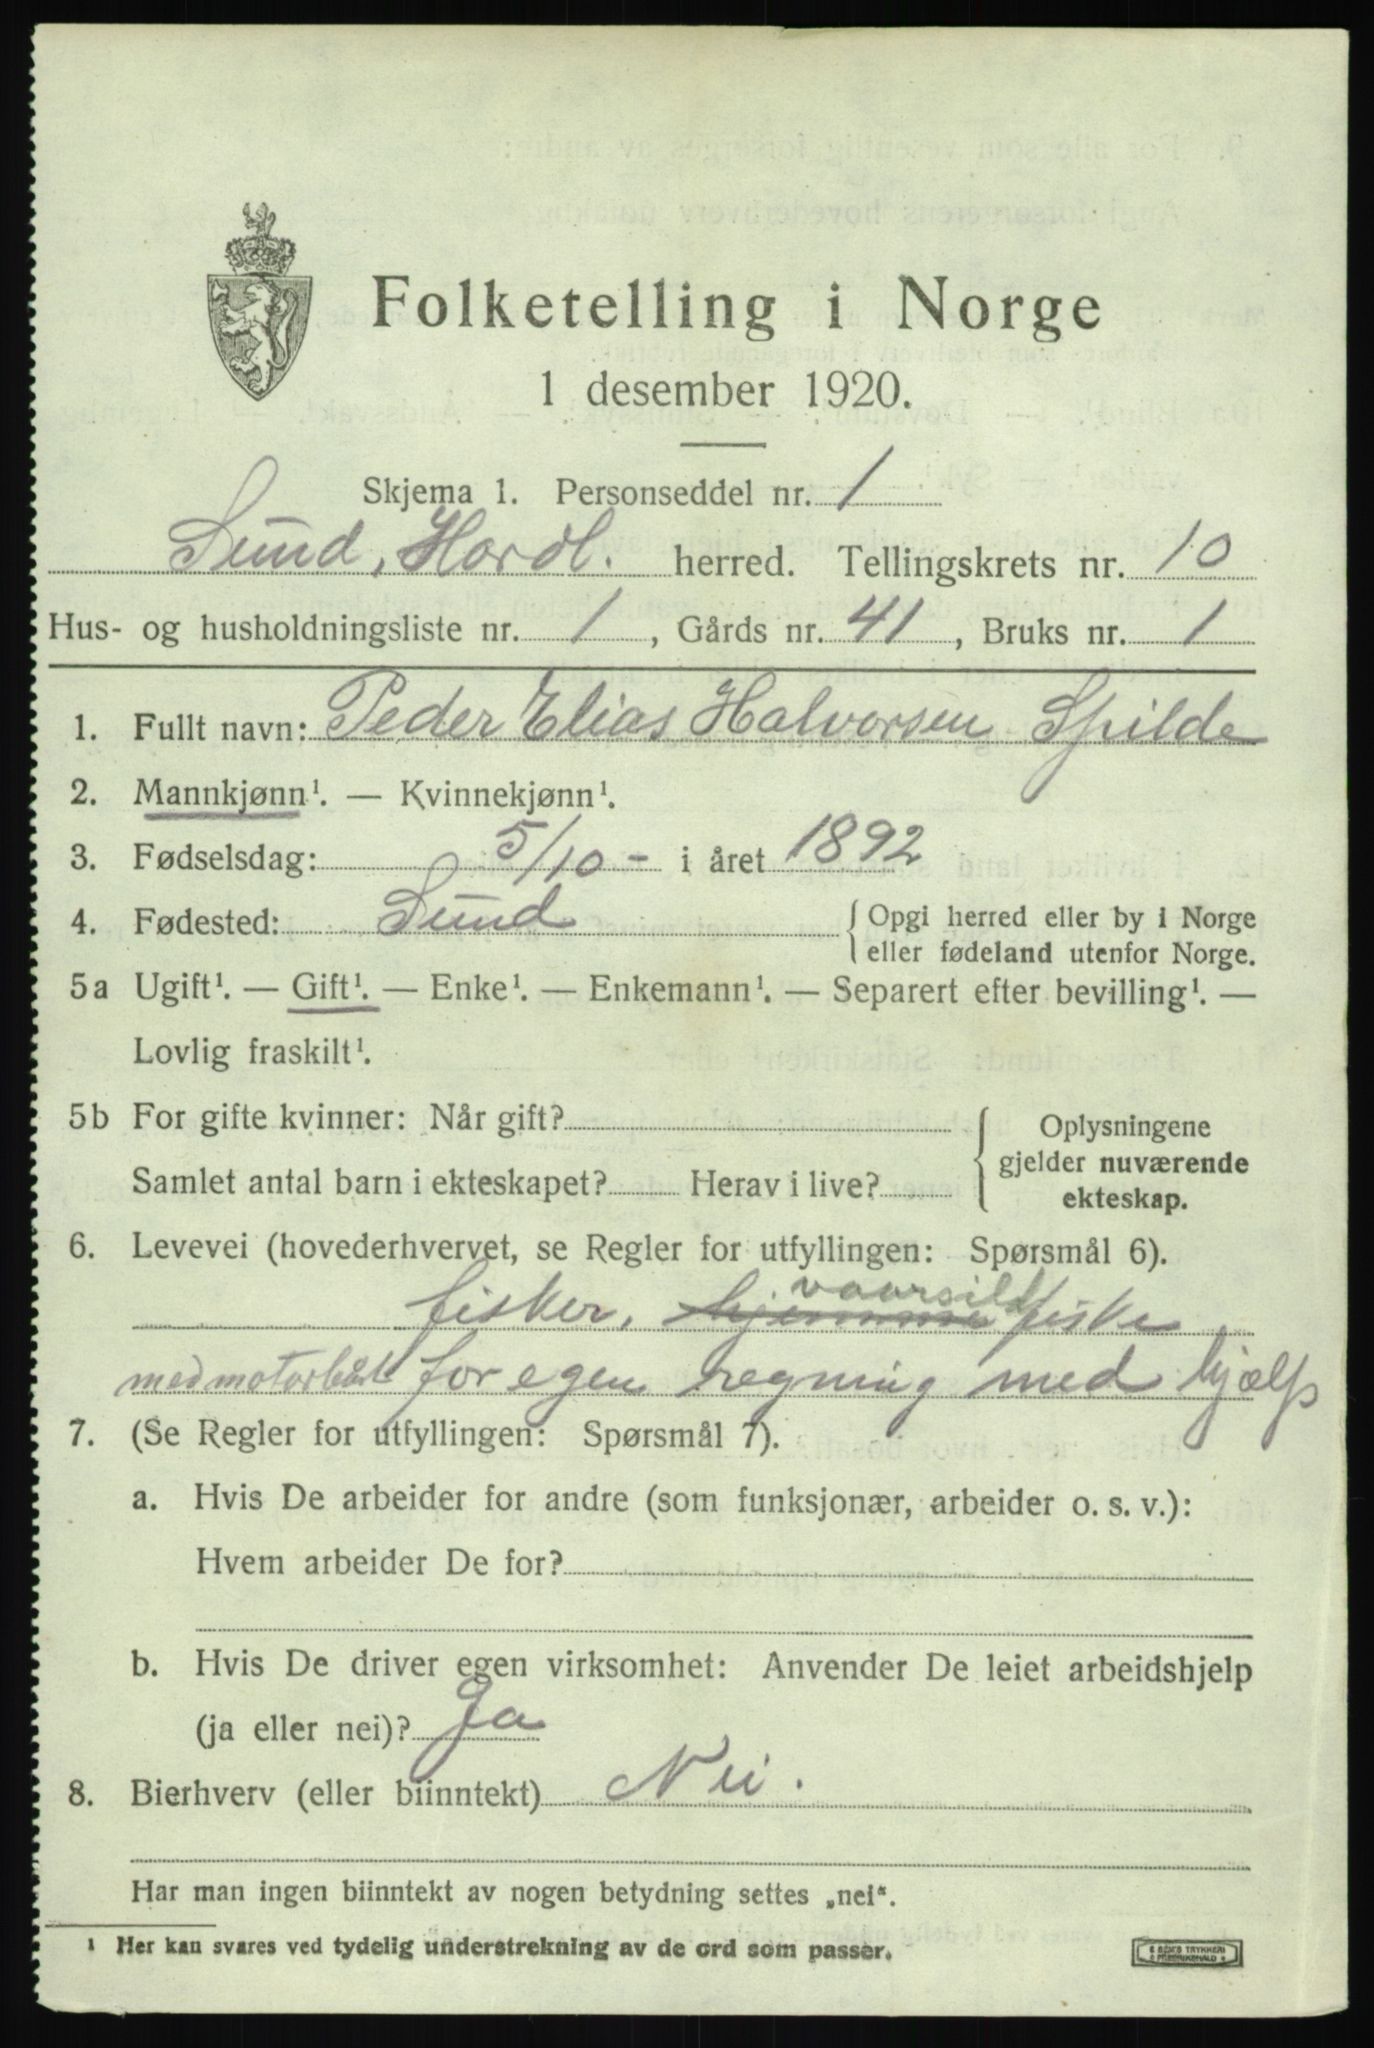 Folketelling i Norge
1 desember 1920.
Skjema 1. Personseddel nr. 1
Sund, Hordl. herred. Tellingskrets nr. 10
Hus- og husholdningsliste nr. 1, Gårds nr. 41, Bruks nr. 1
1. Fullt navn: Peder Elias Halvorsen Spilde
2. Mannkjønn¹. — Kvinnekjønn¹.
3. Fødselsdag: 5/10 - i året 1892
4. Fødested: Sund { Opgi herred eller by i Norge
eller fødeland utenfor Norge.
5a Ugift¹. — Gift¹. — Enke¹. — Enkemann¹. — Separert efter bevilling¹. —
Lovlig fraskilt¹.
5b For gifte kvinner: Når gift? { Oplysningene
gjelder nuværende
ekteskap.
Samlet antal barn i ekteskapet? Herav i live?
6. Levevei (hovederhvervet, se Regler for utfyllingen: Spørsmål 6).
vaarsild
fisker, hjemme fiske
med motorbåt for egen regning med hjælp
7. (Se Regler for utfyllingen: Spørsmål 7).
a. Hvis De arbeider for andre (som funksjonær, arbeider o. s. v.):
Hvem arbeider De for?
b. Hvis De driver egen virksomhet: Anvender De leiet arbeidshjelp
(ja eller nei)? Ja
8. Bierhverv (eller biinntekt) Nei.
Har man ingen biinntekt av nogen betydning settes „nei“.
¹ Her kan svares ved tydelig understrekning av de ord som passer.